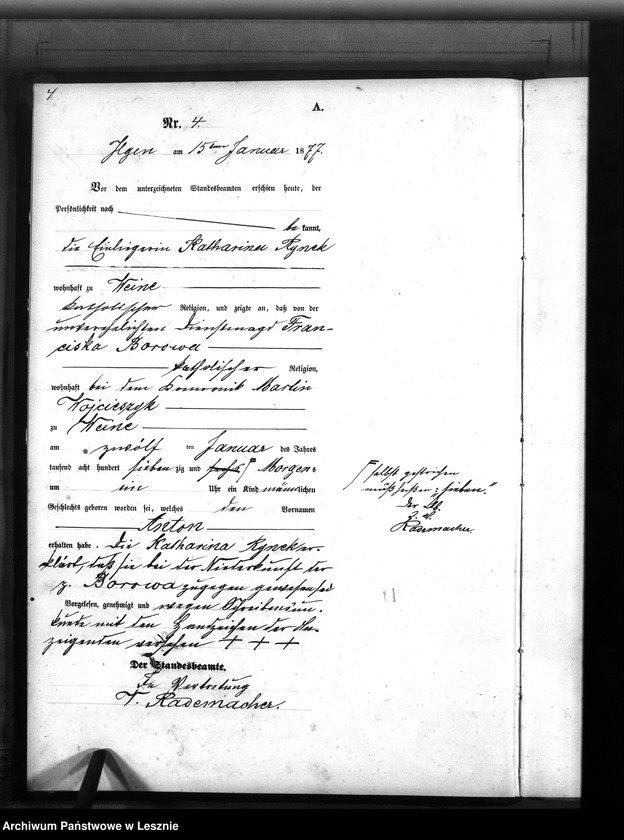 4
A.
Nr. 4.
Ilgen am 15ten Januar 1877.
Vor dem unterzeichneten Standesbeamten erschien heute, der
Persönlichkeit nach
be kannt,
die Einliegerin Katharina Rynek
wohnhaft zu Weine
katholischer Religion, und zeigte an, daß von der
unverehelichten Dienstmagd Fran-
ciska Borowa
katholischer Religion,
wohnhaft bei dem Komornik Martin
Wojcieszyk
zu Weine
am zwölf ten Januar des Jahres
tausend acht hundert sieben zig und sechs Morgens
um ein Uhr ein Kind männlichen
Geschlechts geboren worden sei, welches den Vornamen
Anton
erhalten habe. Die Katharina Rynek er-
klärt, daß sie bei der Niederkunft der
p. Borowa zugegen gewesen sei
Vorgelesen, genehmigt und wegen Schreibensun-
kunde mit den Handzeichen der An-
zeigenden versehen + + +
Der Standesbeamte.
In Vertretung
T. Rademacher.
selbst gestrichen
muß heißen: "sieben."
Der St.
Rademacher.
Archiwum Państwowe w Lesznie